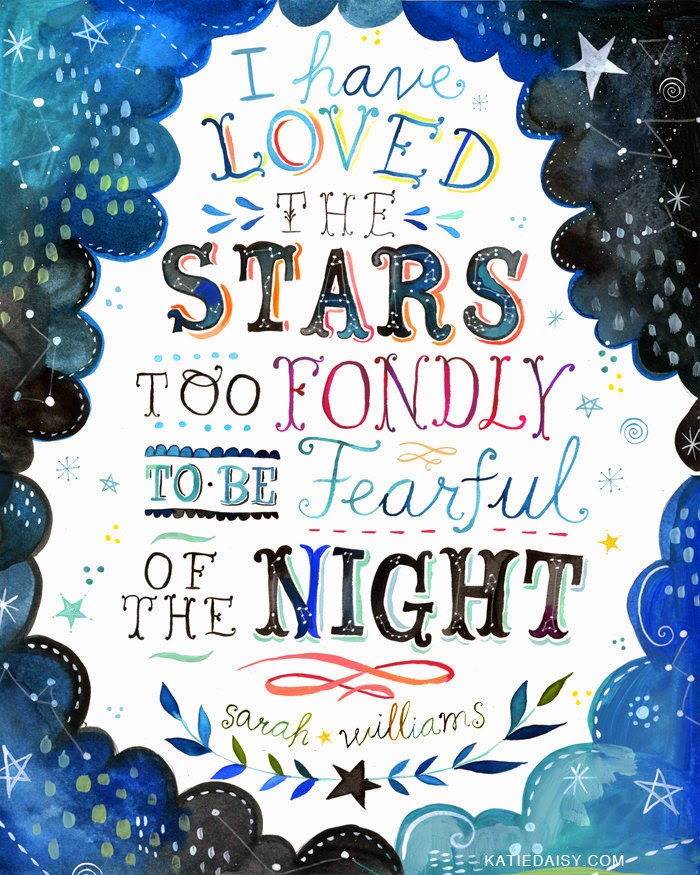 I have
LOVED
THE
STARS
TOO FONDLY
TO·BE Fearful
OF
THE NIGHT
sarah williams
KATIEDAISY.COM